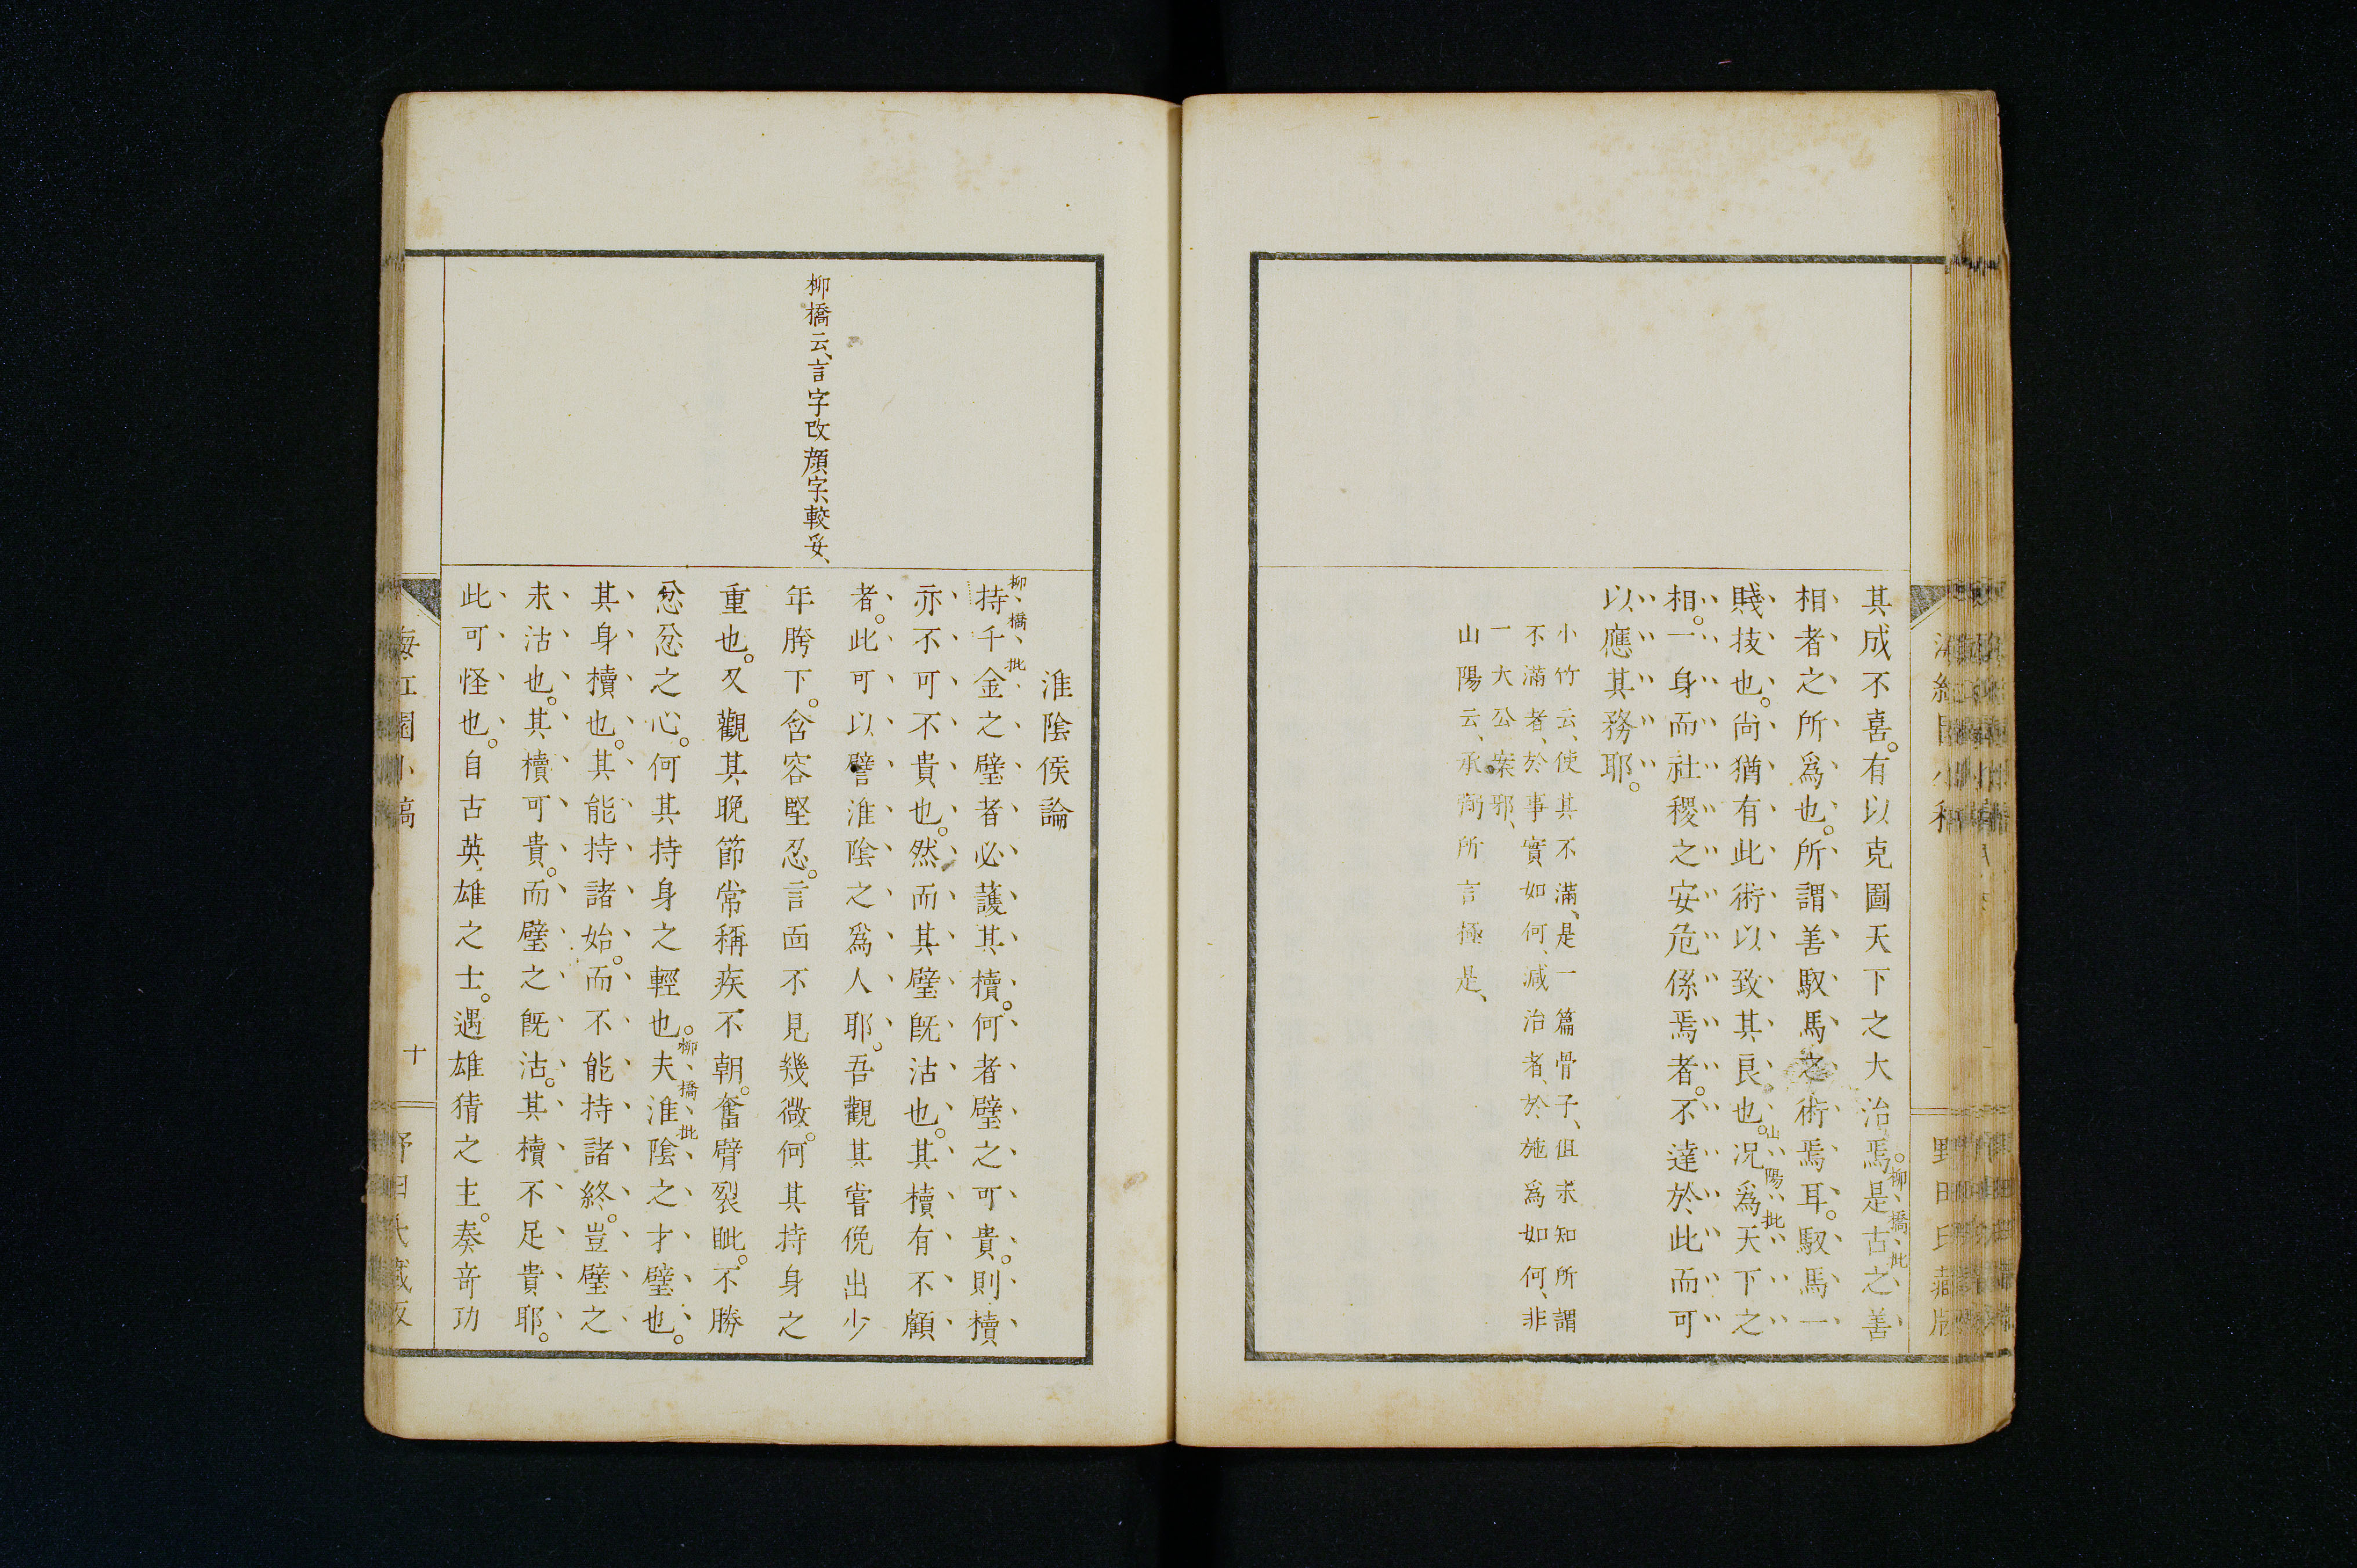 其成不喜。有以克圖天下之大治焉。是古之善
柳橋批
相者之所爲也。所謂善馭馬之術焉耳。馭馬一
賤技也。尚猶有此術以致其良也。况爲天下之
山陽批
相。一身而社稷之安危係焉者。不達於此而可
以應其務耶。
小竹云、使其不滿、是一篇骨子、但未知所謂
不滿者、於事實如何、減治者、於施爲如何、非
一大公案邪、
山陽云、承弼所言極是、
淮陰侯論
柳橋批
持千金之璧者必護其櫝。何者璧之可貴。則櫝
亦不可不貴也。然而其璧既沽也。其櫝有不顧
者。此可以譬淮陰之爲人耶。吾觀其嘗俛出少
年胯下。含容堅忍。言面不見幾微。何其持身之
重也。又觀其晚節常稱疾不朝。奮臂裂眦。不勝
忿忿之心。何其持身之輕也。夫淮陰之才璧也。
柳橋批
其身櫝也。其能持諸始。而不能持諸終。豈璧之
未沽也。其櫝可貴。而璧之既沽。其櫝不足貴耶。
此可怪也。自古英雄之士。遇雄猜之主。奏奇功
柳橋云、言字改顏字、較妥、
海紅園小稿
十
野田氏藏版